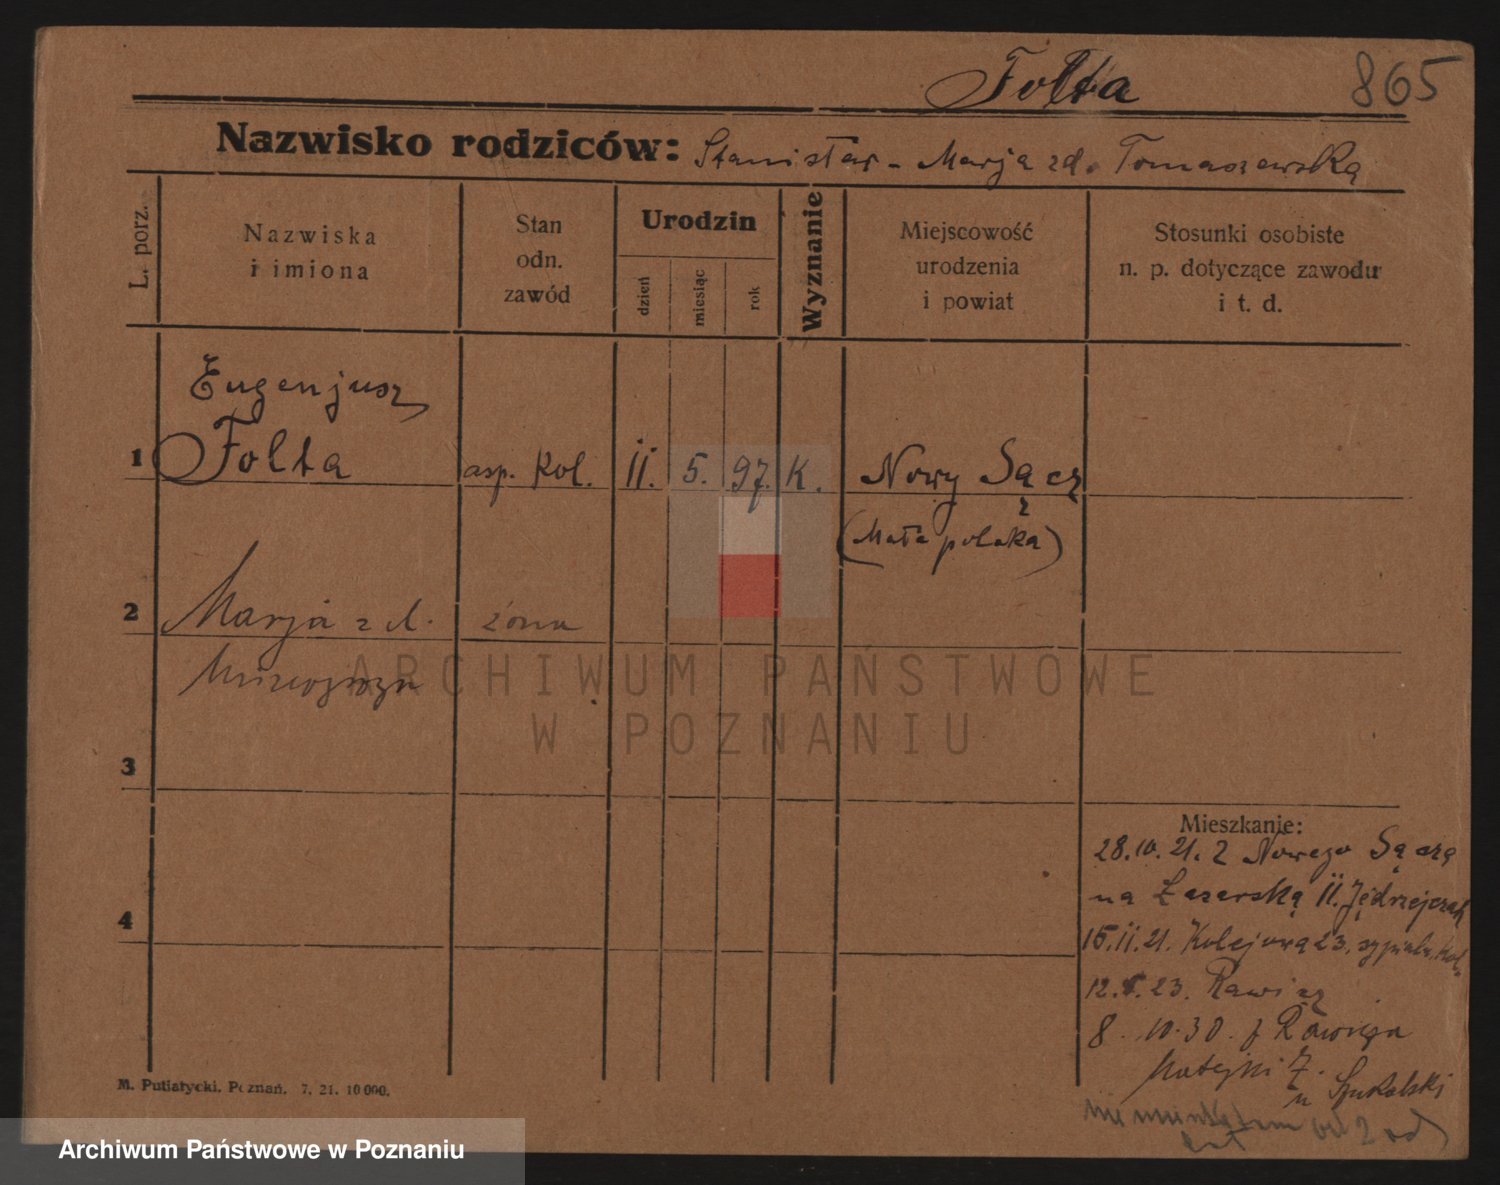 Folta 865
Nazwisko rodziców: Stanisław - Marja zd. Tomaszewska
L. porz.
Nazwiska
i imiona
Stan
odn.
zawód
Urodzin
dzień
miesiąc
rok
Wyznanie
Miejscowość
urodzenia
i powiat
Stosunki osobiste
n. p. dotyczące zawodu
i t. d.
Eugenjusz
1 Folta asp. kol. 11. 5. 97. K. Nowy Sącz
(Mało polska)
2 Marja z d. żona
ARCHIWUM PAŃSTWOWE
W POZNANIU
3
Mieszkanie:
28.10.21. z Nowego Sącza
4 na Łazarską 11. Jędrzejczak
15.11.21. Kolejową 23.
12. 23. Rawicz
8. 10.30. z Rawicza
Matejki 7.
u Spukalski
M. Putiatycki. Poznań. 7. 21. 10 000.
Archiwum Państwowe w Poznaniu